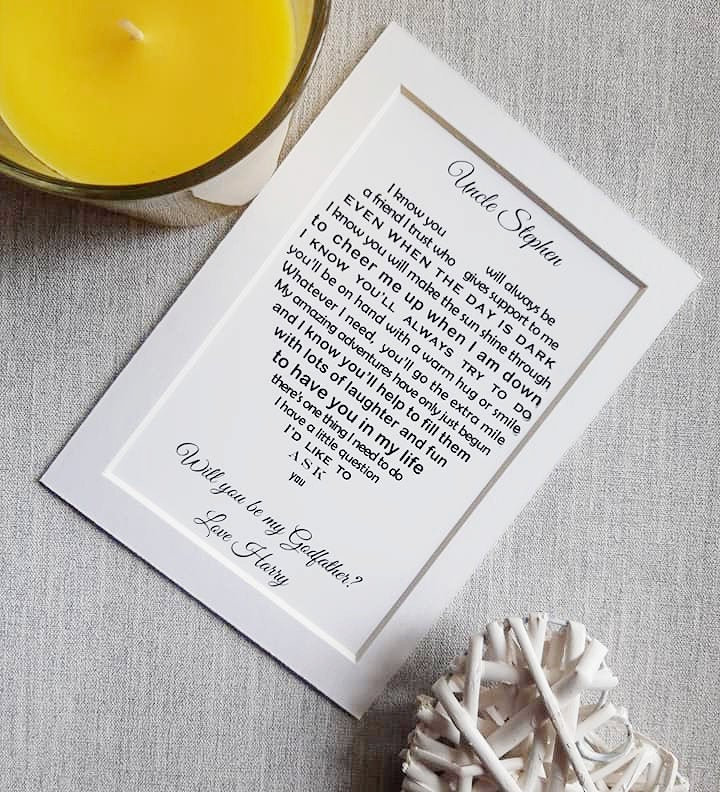 Uncle Stephen
I know you will always be
a friend I trust who gives support to me
EVEN WHEN THE DAY IS DARK
I know you will make the sun shine through
to cheer me up when I am down
I KNOW YOU'LL ALWAYS TRY TO DO
you'll be on hand with a warm hug or smile,
Whatever I need, you'll go the extra mile
My amazing adventures have only just begun
and I know you'll help to fill them
with lots of laughter and fun
to have you in my life
there's one thing I need to do
I have a little question
I'D LIKE TO
ASK
you
Will you be my Godfather?
Love Harry